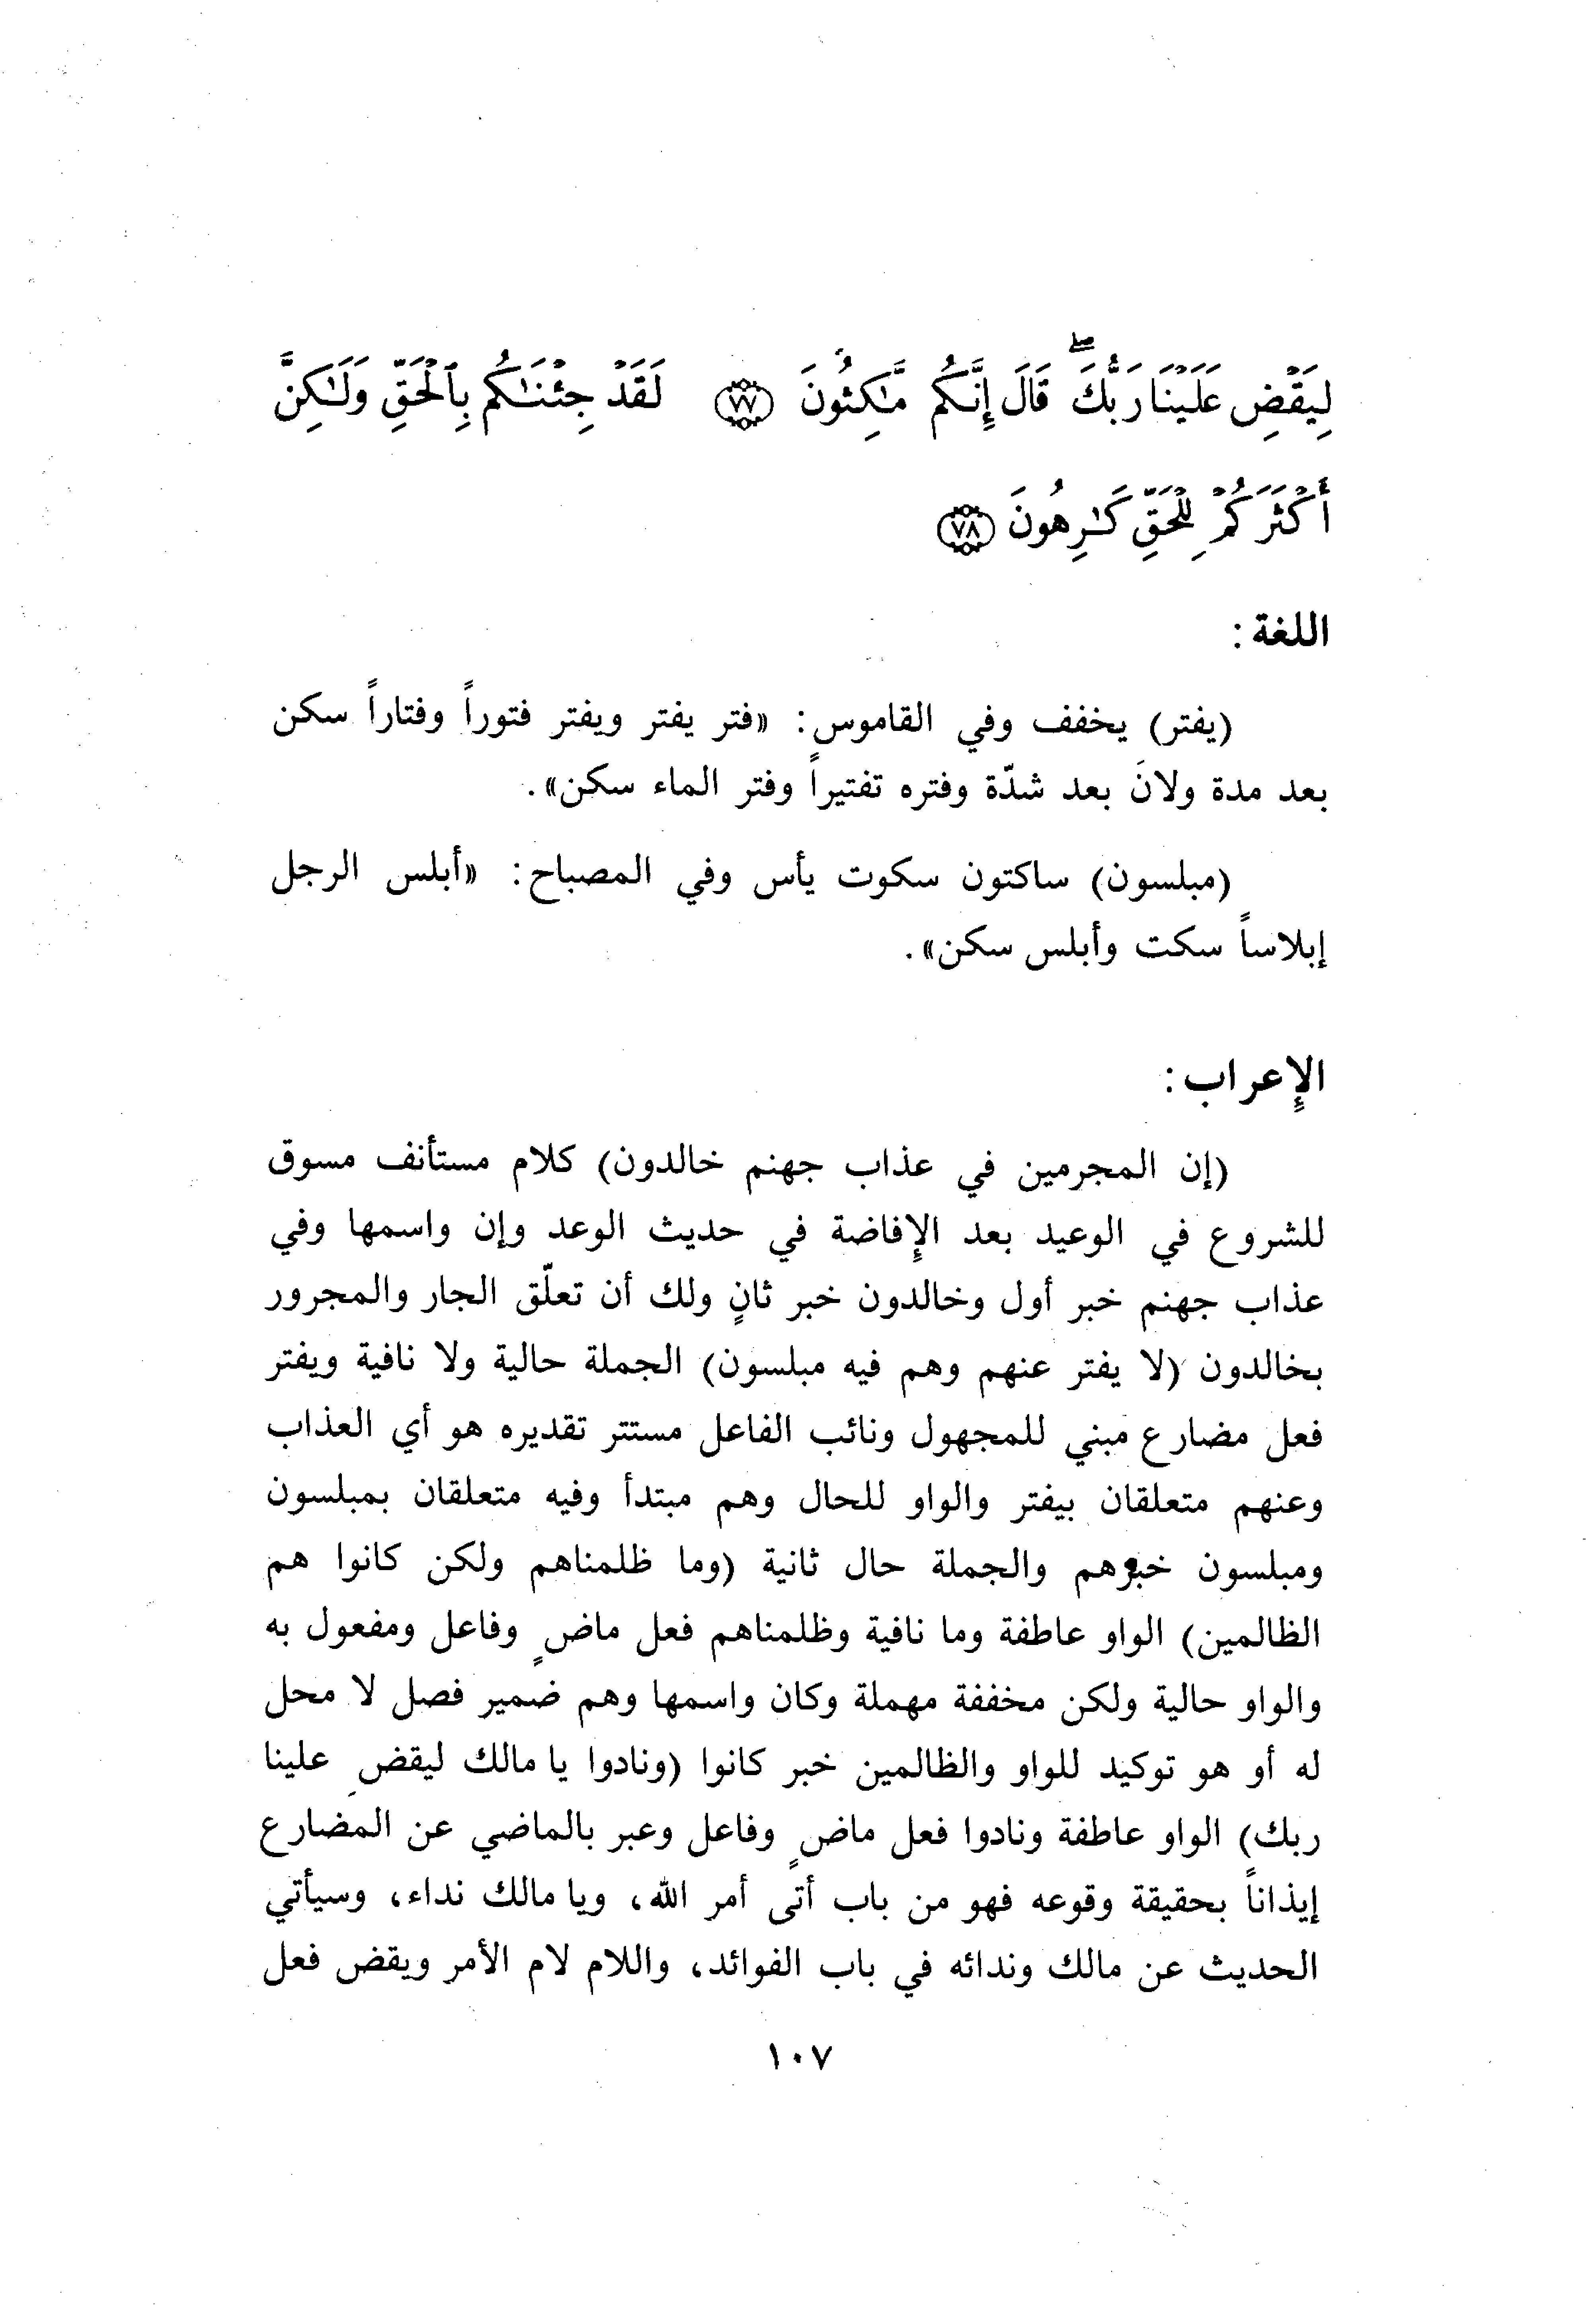 لِيَقْضِ عَلَيْنَا رَبُّكَ ۖ قَالَ إِنَّكُم مَّٰكِثُونَ ﴿٧٧﴾ لَقَدْ جِئْنَٰكُم بِٱلْحَقِّ وَلَٰكِنَّ
أَكْثَرَكُمْ لِلْحَقِّ كَٰرِهُونَ ﴿٧٨﴾
اللغة :
(يفتر) يخفف وفي القاموس: «فتر يفتر ويفتر فتوراً وفتاراً سكن
بعد مدة ولانَ بعد شدّة وفتره تفتيراً وفتر الماء سكن».
(مبلسون) ساكتون سكوت يأس وفي المصباح: «أبلس الرجل
إبلاساً سكت وأبلس سكن».
الإعراب :
(إن المجرمين في عذاب جهنم خالدون) كلام مستأنف مسوق
للشروع في الوعيد بعد الإفاضة في حديث الوعد وإن واسمها وفي
عذاب جهنم خبر أول وخالدون خبر ثانٍ ولك أن تعلّق الجار والمجرور
بخالدون (لا يفتر عنهم وهم فيه مبلسون) الجملة حالية ولا نافية ويفتر
فعل مضارع مبني للمجهول ونائب الفاعل مستتر تقديره هو أي العذاب
وعنهم متعلقان بيفتر والواو للحال وهم مبتدأ وفيه متعلقان بمبلسون
ومبلسون خبرهم والجملة حال ثانية (وما ظلمناهم ولكن كانوا هم
الظالمين) الواو عاطفة وما نافية وظلمناهم فعل ماضٍ وفاعل ومفعول به
والواو حالية ولكن مخففة مهملة وكان واسمها وهم ضمير فصل لا محل
له أو هو توكيد للواو والظالمين خبر كانوا (ونادوا يا مالك ليقضِ علينا
ربك) الواو عاطفة ونادوا فعل ماضٍ وفاعل وعبر بالماضي عن المضارع
إيذاناً بحقيقة وقوعه فهو من باب أتى أمر الله، ويا مالك نداء، وسيأتي
الحديث عن مالك وندائه في باب الفوائد، واللام لام الأمر ويقض فعل
١٠٧